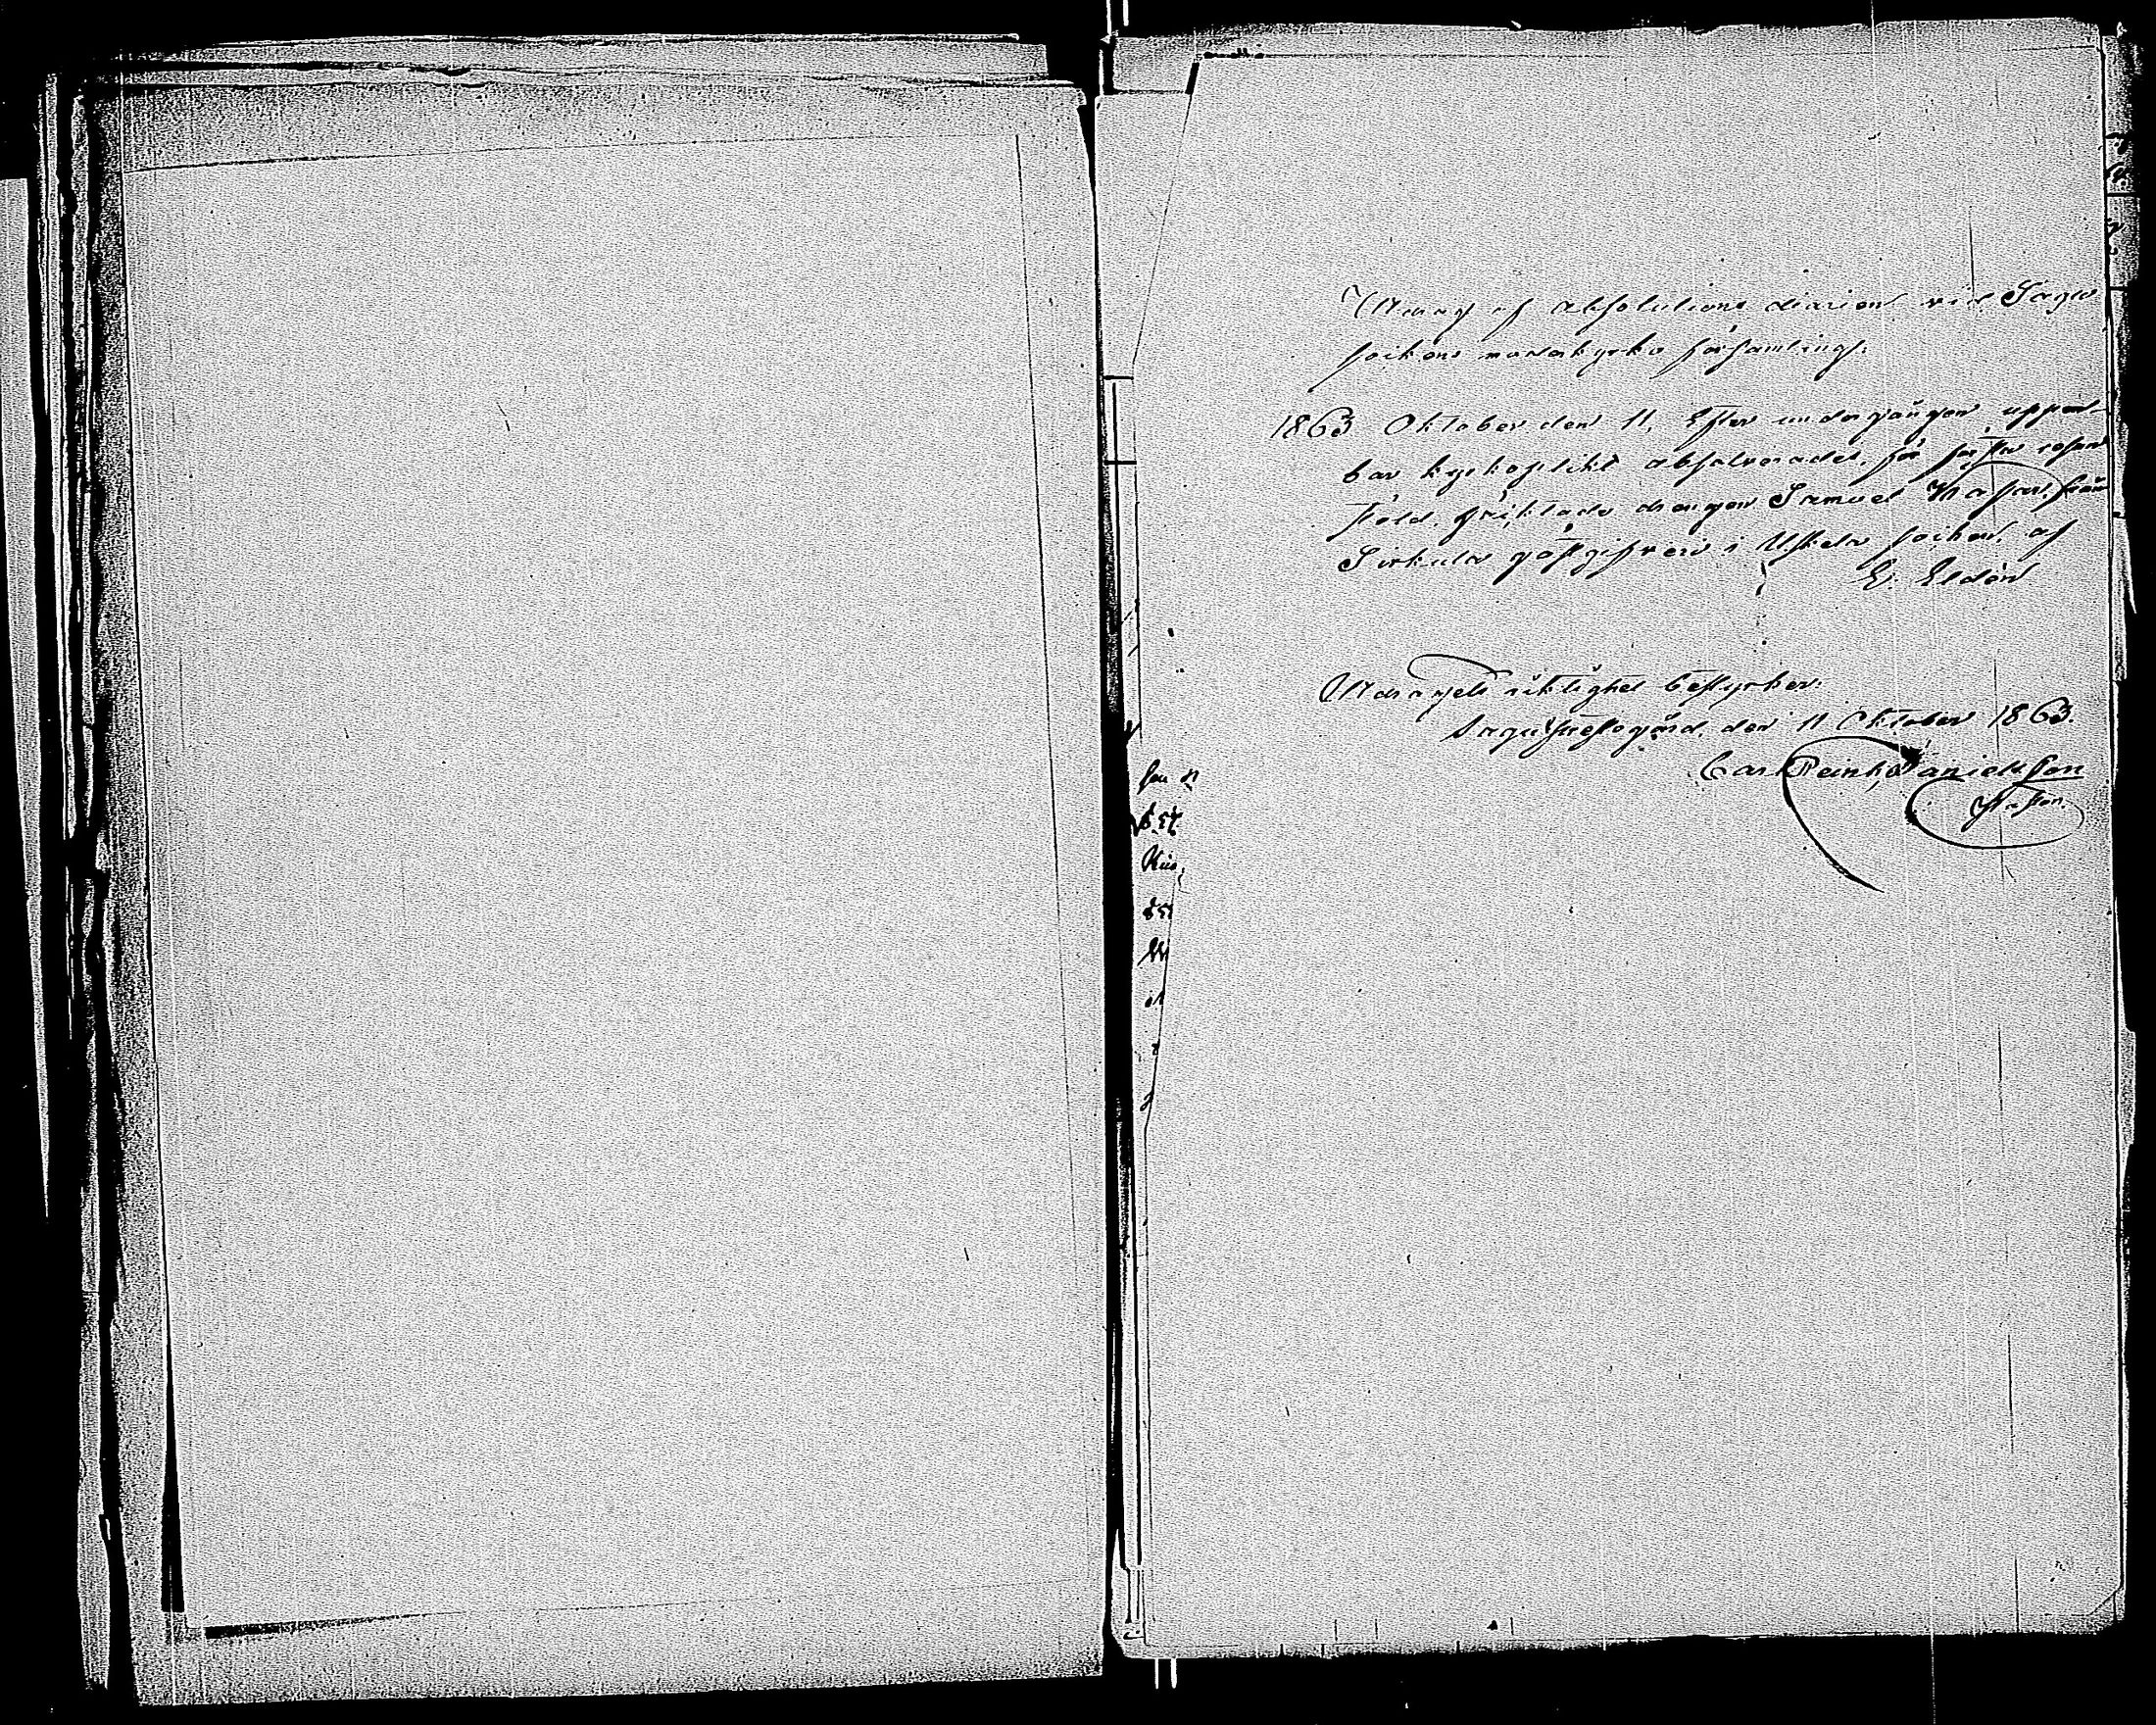 Utdrag af absolutions diarien vid Sagu
sockens moderkyrko församling.
1863 Oktober den 11, Efter undergången uppen-
bar kyrkoplikt absolverades, för första resan
stöld, fräiktade drengen Samuel från
gästgifveri i Uskela socken, af
E. Eldén
Utdragets riktighet bestyrker:
Sagu Prestegård, den 11 Oktober 1863.
Carl Reinh. Danielsson
Pastor.